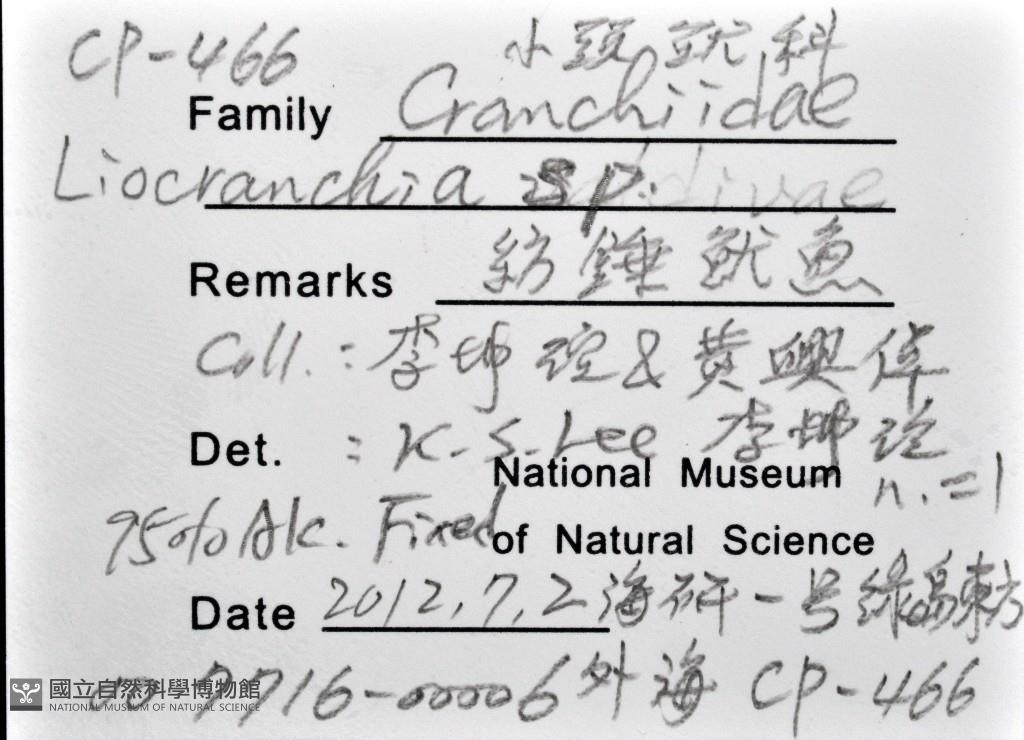 CP-466 小頭魷科
Family Cranchiidae
Liocranchia sp.
Remarks 紡錘魷魚
Coll. : 李坤瑄 & 黃興倬
Det. : K. S. Lee 李坤瑄
National Museum n.=1
95% Alc. Fixed of Natural Science
Date 2012,7,2 海研一号綠島東方
7716-00006 外海 CP-466
國立自然科學博物館
NATIONAL MUSEUM OF NATURAL SCIENCE